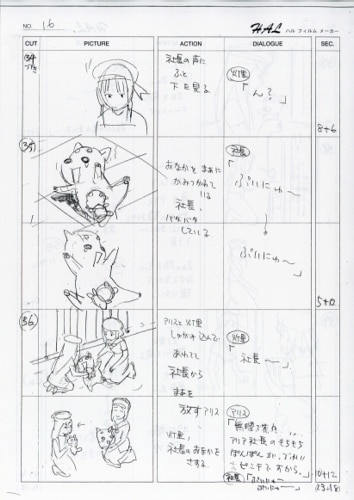 NO. 16
HAL ハル フィルム メーカー
CUT
PICTURE
ACTION
DIALOGUE
SEC.
34
社長の声に
ふと
下を見る
灯里
「ん?
」
8+6
35
おなかをまぁに
かみつかれて
いる
社長、
バタバタ
している
社長
「
ぷいにゅ〜
ぷいにゅ
〜」
5+0
36
アリスと灯里
しゃがみ込んで
あわてて
社長から
まぁを
放すアリス
灯里、
社長のおなかを
さする。
灯里
「社長〜
」
アリス
「
アリア社長のもちもち
ぽんぽん
社長
10+12